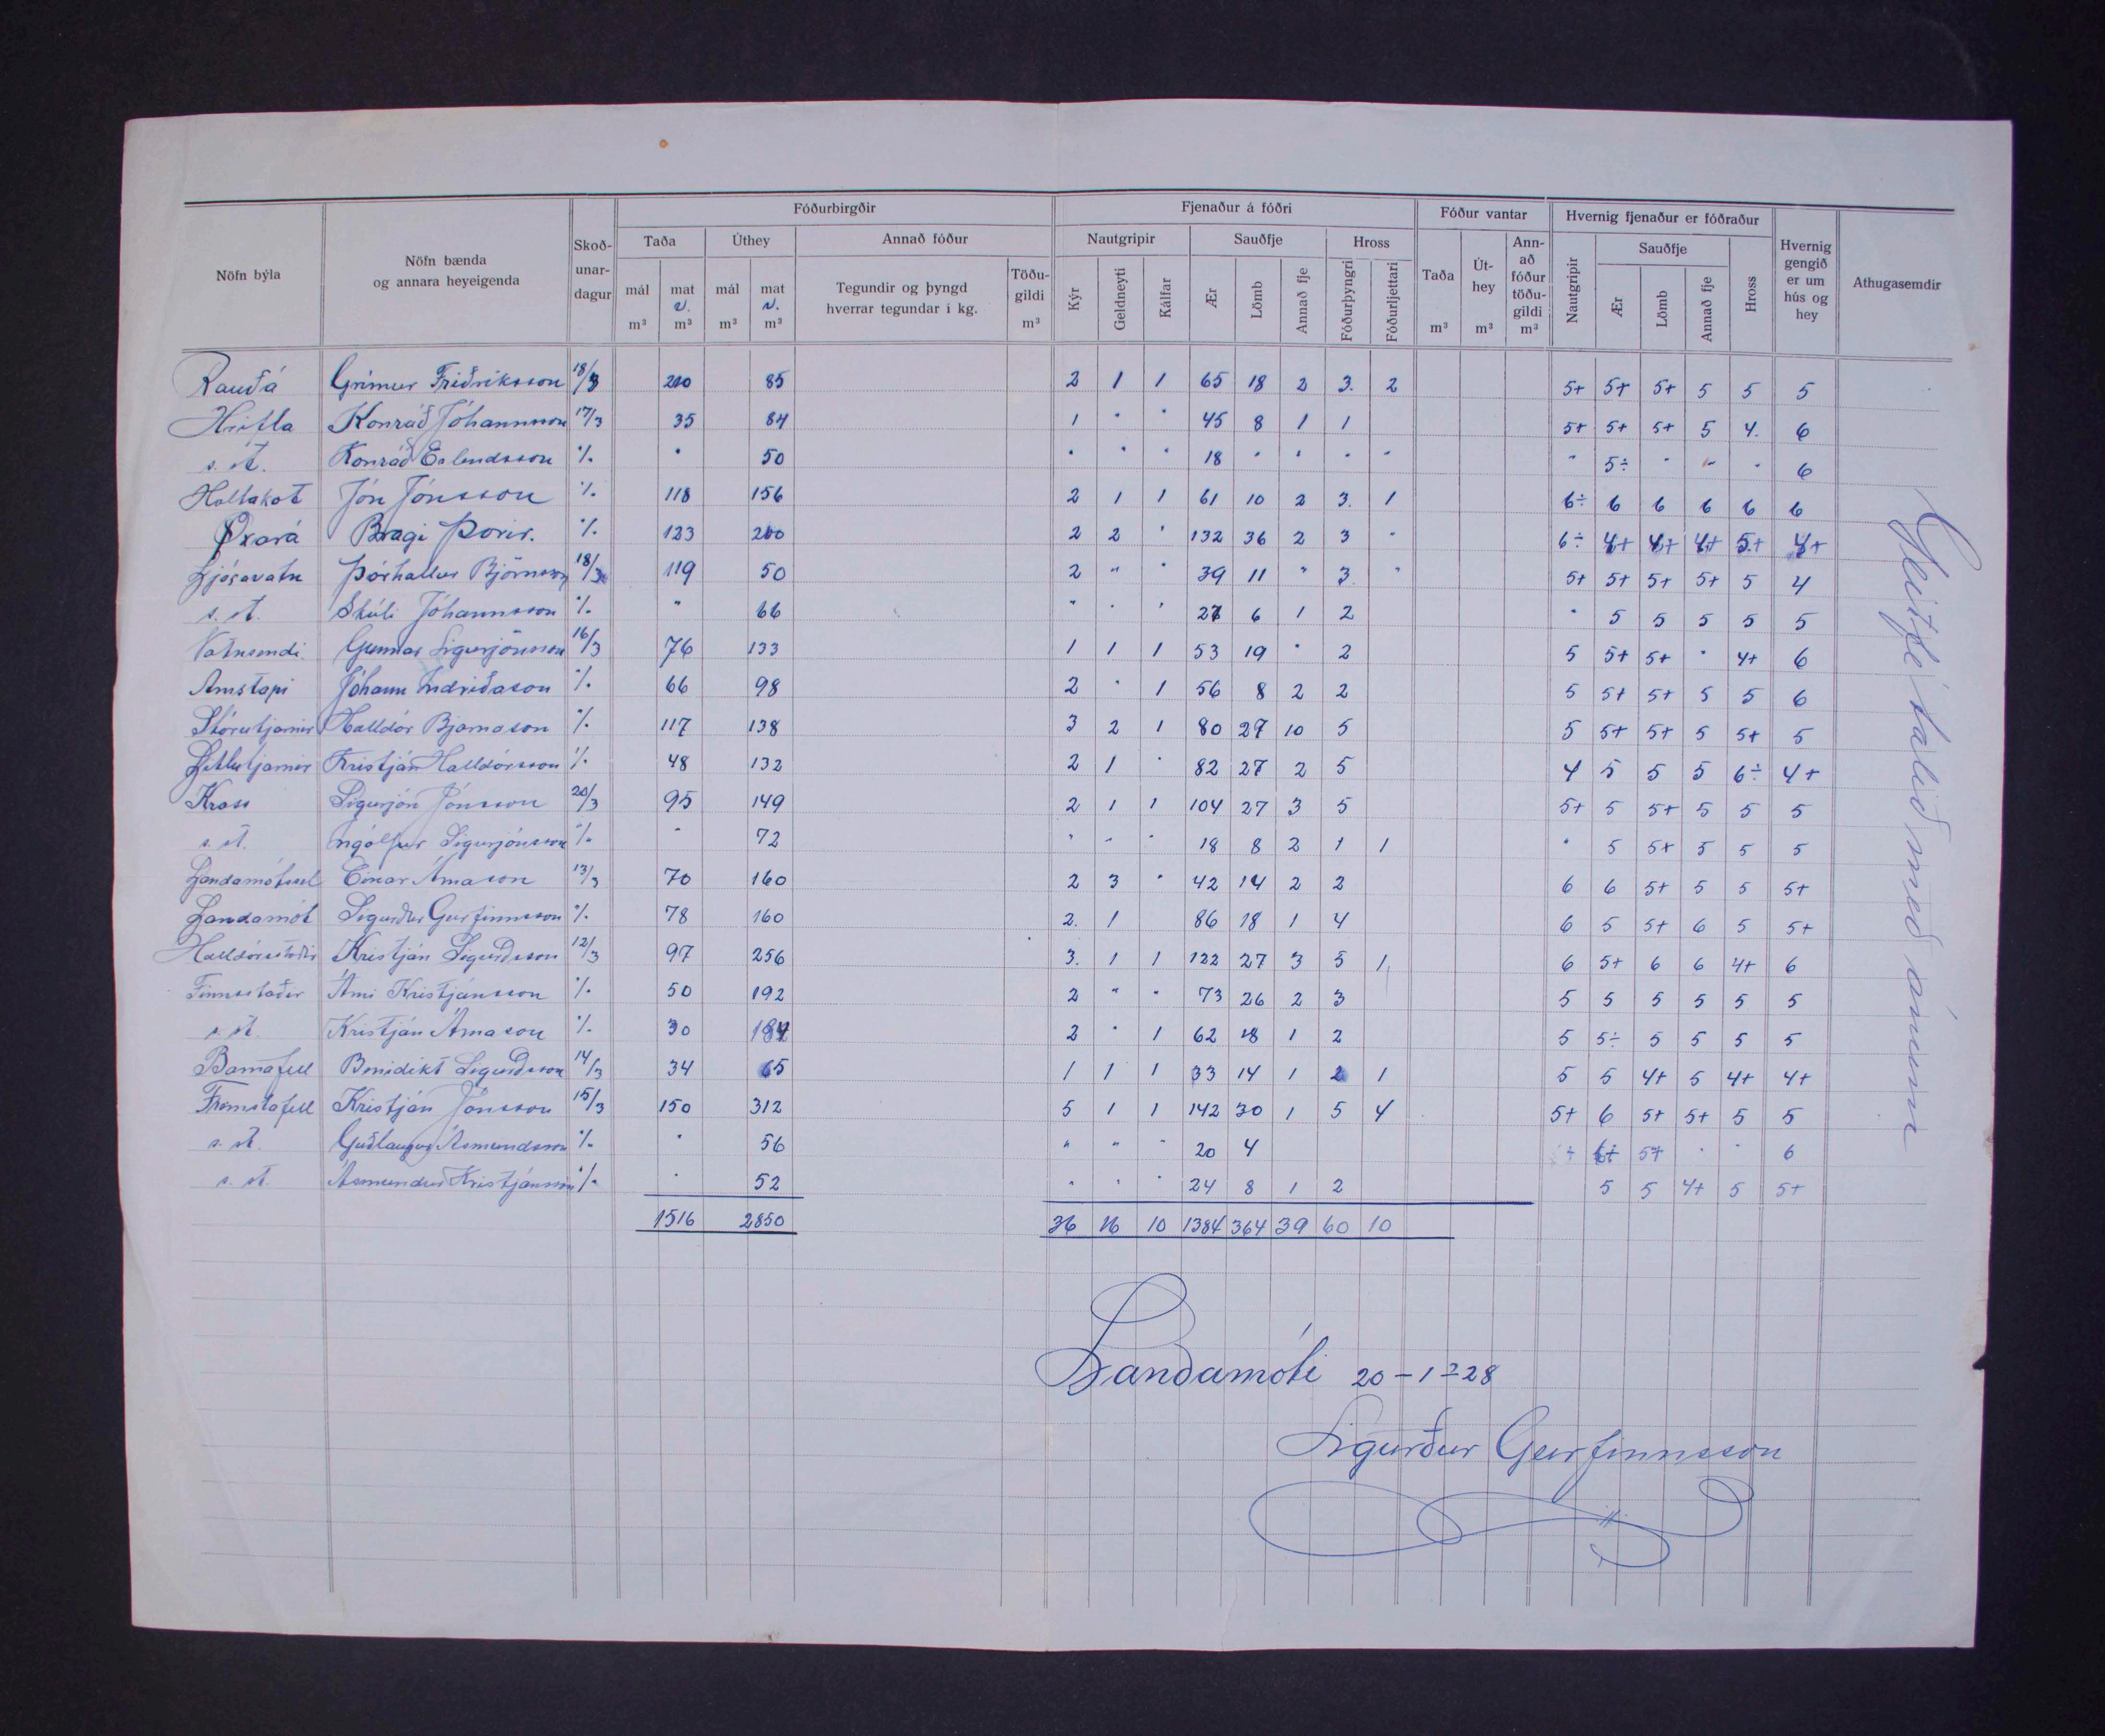 Fóðurbirgðir Fjenaður á fóðri Fóður vantar Hvernig fjenaður er fóðraður
Nöfn býla Nöfn bænda og annara heyeigenda Skoð-unar-dagur Taða Úthey Annað fóður Nautgripir Sauðfje Hross Taða Út-hey Ann-að fóður töðu-gildi Nautgripir Sauðfje Hross Hvernig gengið er um hús og hey Athugasemdir
mál mat v. mál mat v. Tegundir og þyngd hverrar tegundar í kg. Töðu-gildi Kýr Geldneyti Kálfar Ær Lömb Annað fje Fóðurþyngri Fóðurljettari Ær Lömb Annað fje
m³ m³ m³ m³ m³ m³ m³ m³
Rauðá Grímur Friðriksson 18/3 210 85 2 1 1 65 18 2 3. 2 5+ 5+ 5+ 5 5 5
Hriflla Konráð Jóhannsson 17/3 35 84 1 " " 45 8 1 1 5+ 5+ 5+ 5 4. 6
s. st. Konráð Erlendsson % " 50 " " " 18 " " " " " 5÷ " " " 6
Holtakot Jón Jónsson % 118 156 2 1 1 61 10 2 3. 1 6÷ 6 6 6 6 6
Öxará Bragi Þorir. % 123 200 2 2 " 132 36 2 3 " 6÷ 4+ 4+ 4+ 5+ 4+
Ljósavatn Þórhallur Björnsson 18/3 119 50 2 " " 39 11 " 3 " 5+ 5+ 5+ 5+ 5 4
s. st. Skúli Jóhannsson % " 66 " " " 27 6 1 2 " 5 5 5 5 5
Vatnsendi Gunnar Sigurjónsson 16/3 76 133 1 1 1 53 19 " 2 5 5+ 5+ " 4+ 6
Arnstapi Jóhann Indriðason % 66 98 2 " 1 56 8 2 2 5 5+ 5+ 5 5 6
Stórutjarnir Halldór Bjarnason % 117 138 3 2 1 80 27 10 5 5 5+ 5+ 5 5+ 5
Litlutjarnir Kristján Halldórsson % 48 132 2 1 " 82 27 2 5 4 5 5 5 6÷ 4+
Kross Sigurjón Jónsson 20/3 95 149 2 1 1 104 27 3 5 5+ 5 5+ 5 5 5
s. st. Ingólfur Sigurjónsson % " 72 " " " 18 8 2 1 1 " 5 5+ 5 5 5
Landamótssel Einar Árnason 13/3 70 160 2 3 " 42 14 2 2 6 6 5+ 5 5 5+
Landamót Sigurður Geirfinnsson % 78 160 2. 1 86 18 1 4 6 5 5+ 6 5 5+
Halldórsstaðir Kristján Sigurðsson 12/3 97 256 3. 1 1 122 27 3 5 1 6 5+ 6 6 4+ 6
Finnsstaðir Árni Kristjánsson % 50 192 2 " " 73 26 2 3 5 5 5 5 5 5
s. st. Kristján Árnason % 30 184 2 " 1 62 18 1 2 5 5÷ 5 5 5 5
Barnafell Benidikt Sigurðsson 14/3 34 65 1 1 1 33 14 1 2 1 5 5 4+ 5 4+ 4+
Fremstafell Kristján Jónsson 15/3 150 312 5 1 1 142 30 1 5 4 5+ 6 5+ 5+ 5 5
s. st. Guðlaugur Ásmundsson % " 56 " " " 20 4 5+ " " 6
s. st. Ásmundur Kristjánsson % " 52 " " " 24 8 1 2 5 5 4+ 5 5+
1516 2850 36 16 10 1384 364 39 60 10
Geitfé talið með ánum
Landamóti 20-1-28
Sigurður Geirfinnsson